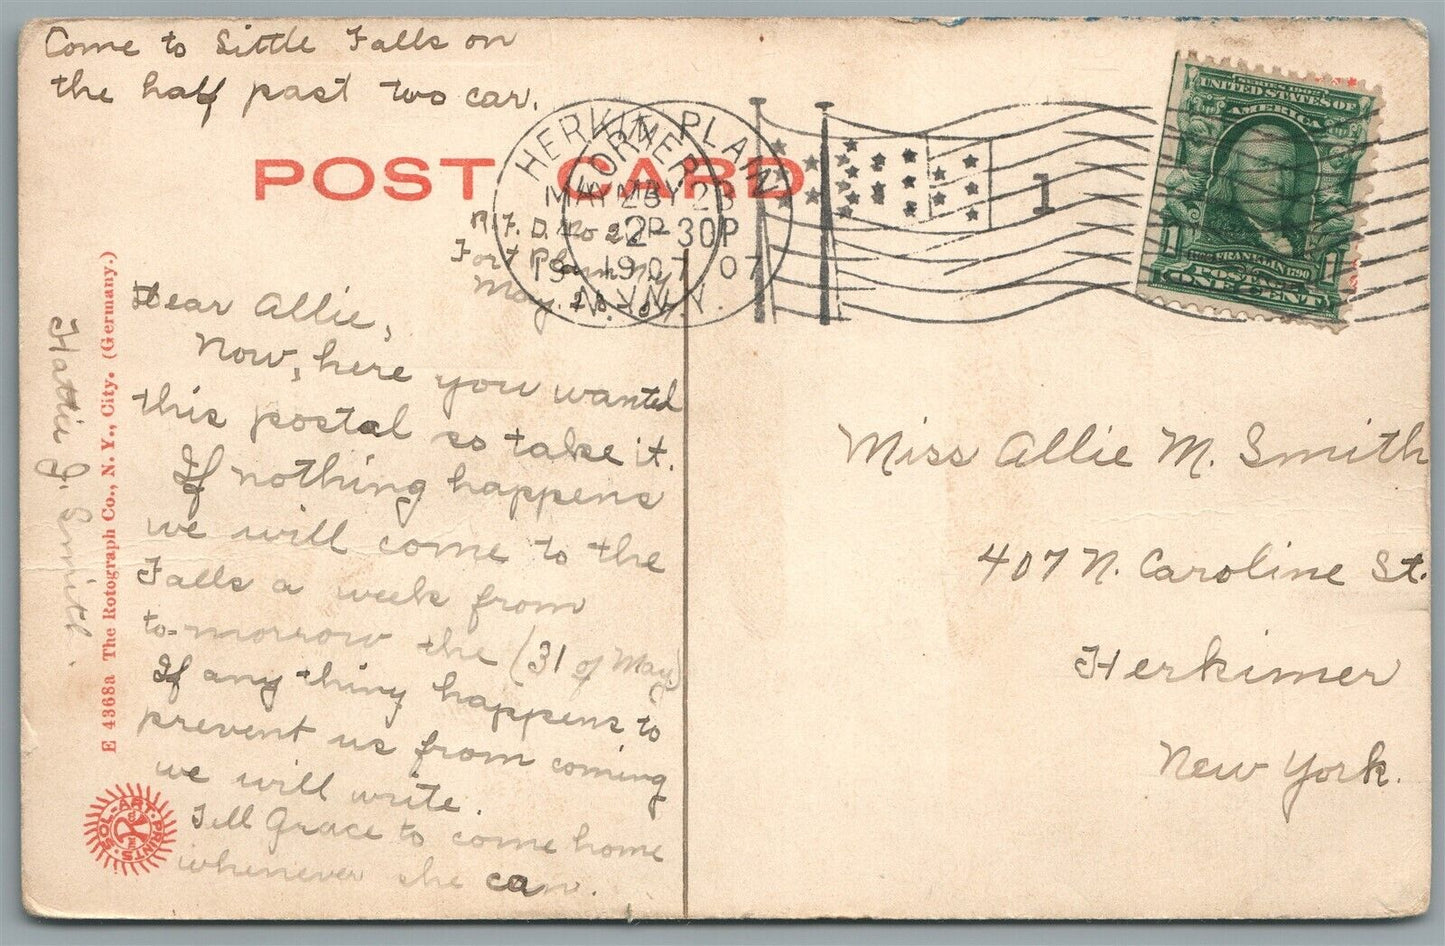 Come to Little Falls on
the half past two car.
POST CARD
HERKIMER
FORT PLAIN
MAY 23
2-30P
1907
N.Y.
1
SERIES 1902
UNITED STATES OF
AMERICA
FRANKLIN 1790
POSTAGE
1 1
ONE CENT
R.F.D. No 2
Fort Plain
May
Dear Allie,
Now, here you wanted
this postal so take it.
If nothing happens
we will come to the
Falls a week from
to-morrow the (31 of May)
If any thing happens to
prevent us from coming
we will write.
Tell Grace to come home
whenever she can.
Hattie J. Smith.
E 4368a The Rotograph Co., N. Y., City. (Germany.)
SOL-ART-PRINTS
Miss Allie M. Smith
407 N. Caroline St.
Herkimer
New York.